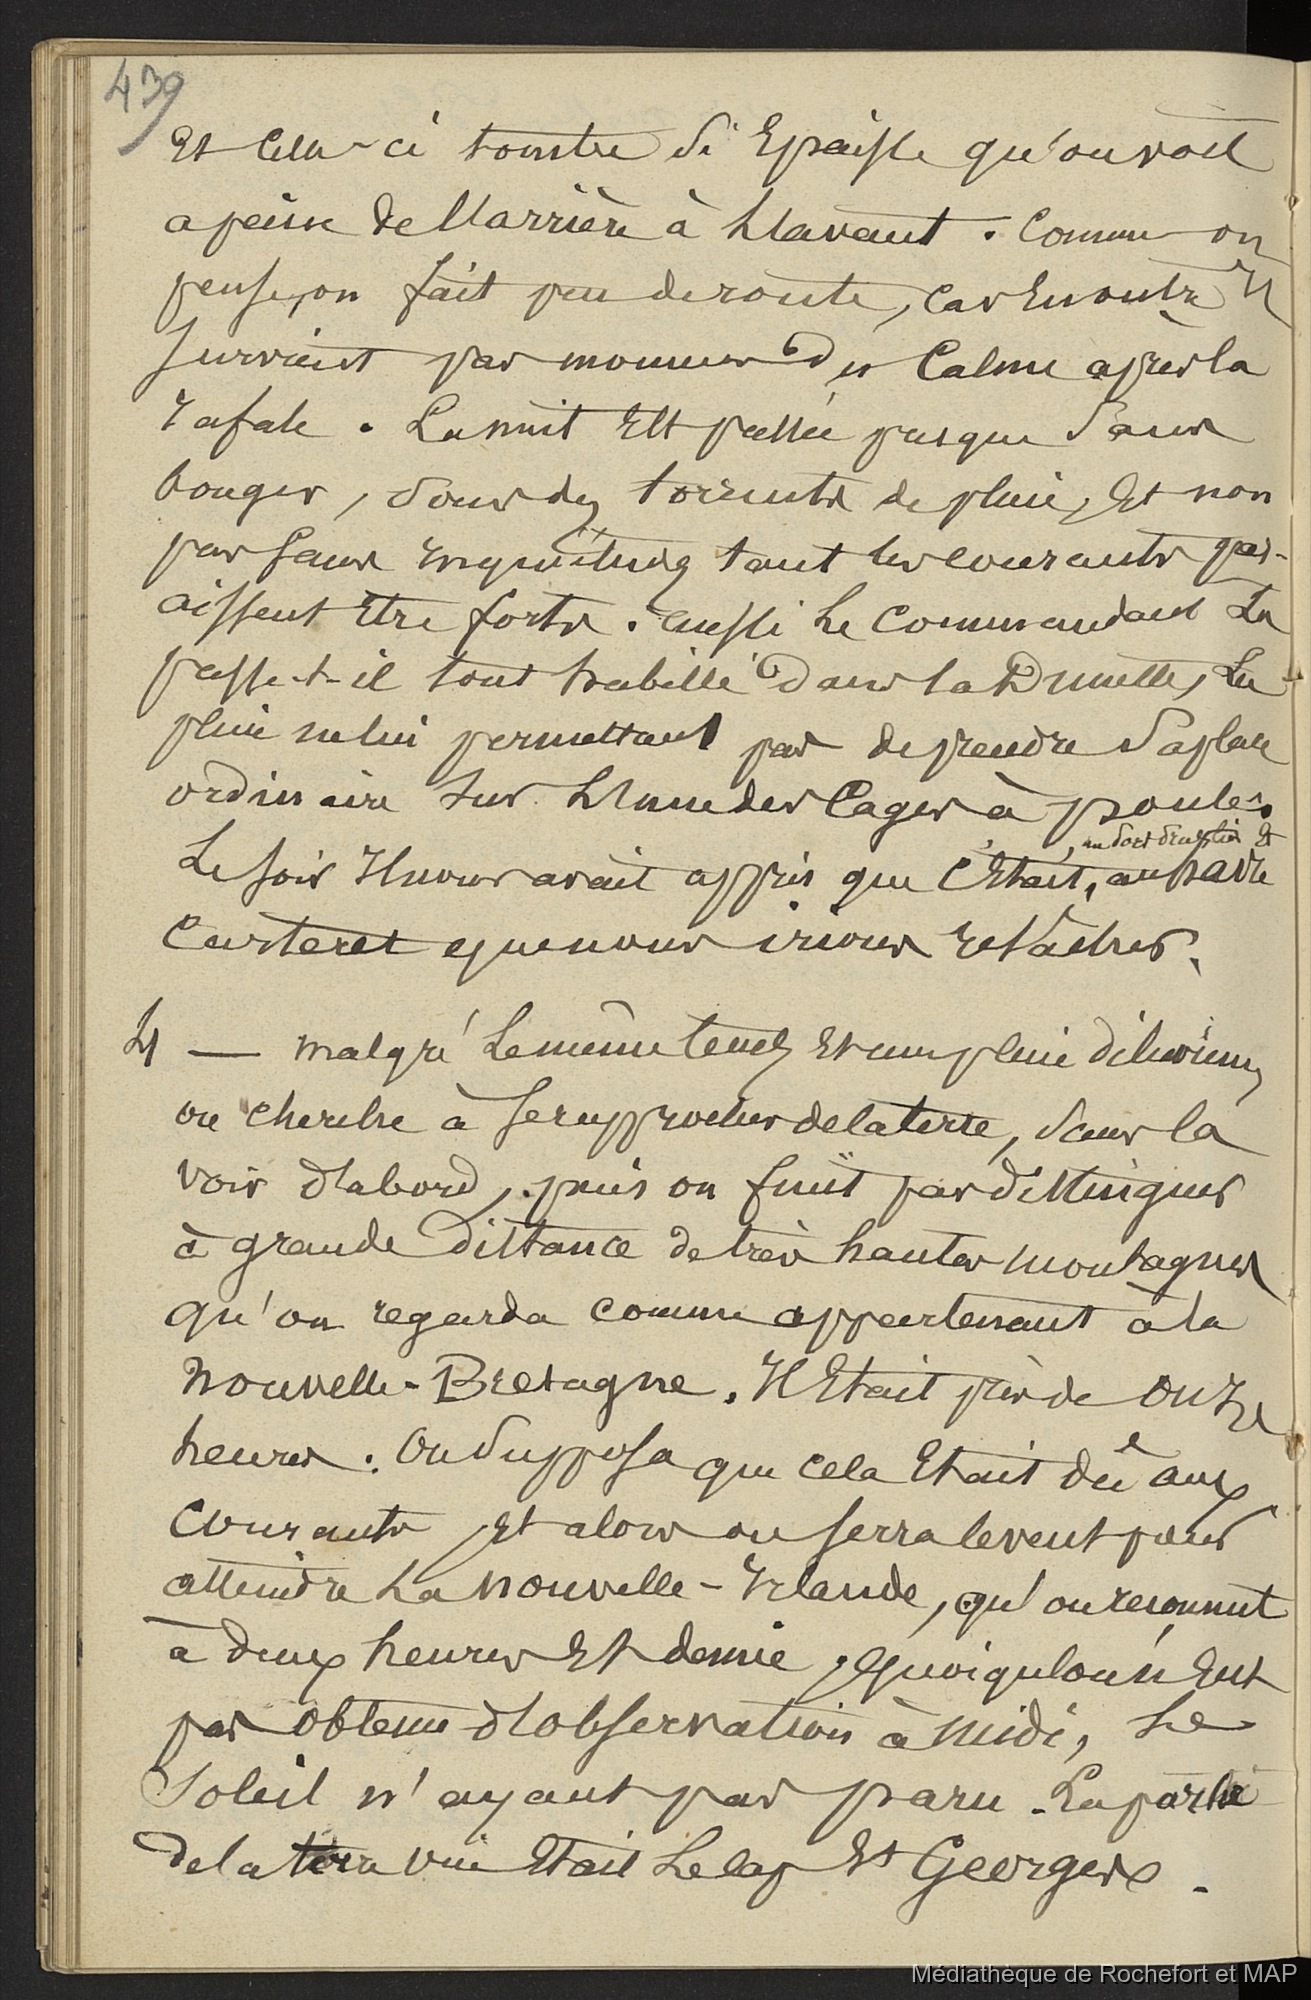 439
et celle-ci tombe si épaisse qu'on voit
a peine de l'arrière à l'avant. Comme on
pense, on fait peu de route, car en outre il
survient par moment des calmes après la
rafale. La nuit est passée presque sans
bouger, sous des torrents de pluie, et non
pas sans inquiétudes tant les courants par-
aissent être forts. aussi le commandant la
passe-t-il tout habillé dans la dunette, la
pluie ne lui permettant pas de prendre sa place
ordinaire sur l'une des cages à poules.
Le soir il nous avait appris que c'était, au havre
Carteret que nous irions relâcher.
4 — malgré le même temps et une pluie diluvienne,
on cherche à se rapprocher de la terre, sans la
voir d'abord, puis on finit par distinguer
à grande distance de très hautes montagnes
qu'on regarda comme appartenant à la
nouvelle-Bretagne. Il était près de onze
heures. On supposa que cela était dû aux
courants, et alors on serra le vent pour
atteindre la nouvelle-Irlande, qu'on reconnut
à deux heures et demie, quoiqu'on n'eut
pas obtenu d'observation à midi, le
soleil n'ayant pas paru. La partie
de la terre vue était le cap St Georges.
Médiathèque de Rochefort et MAP